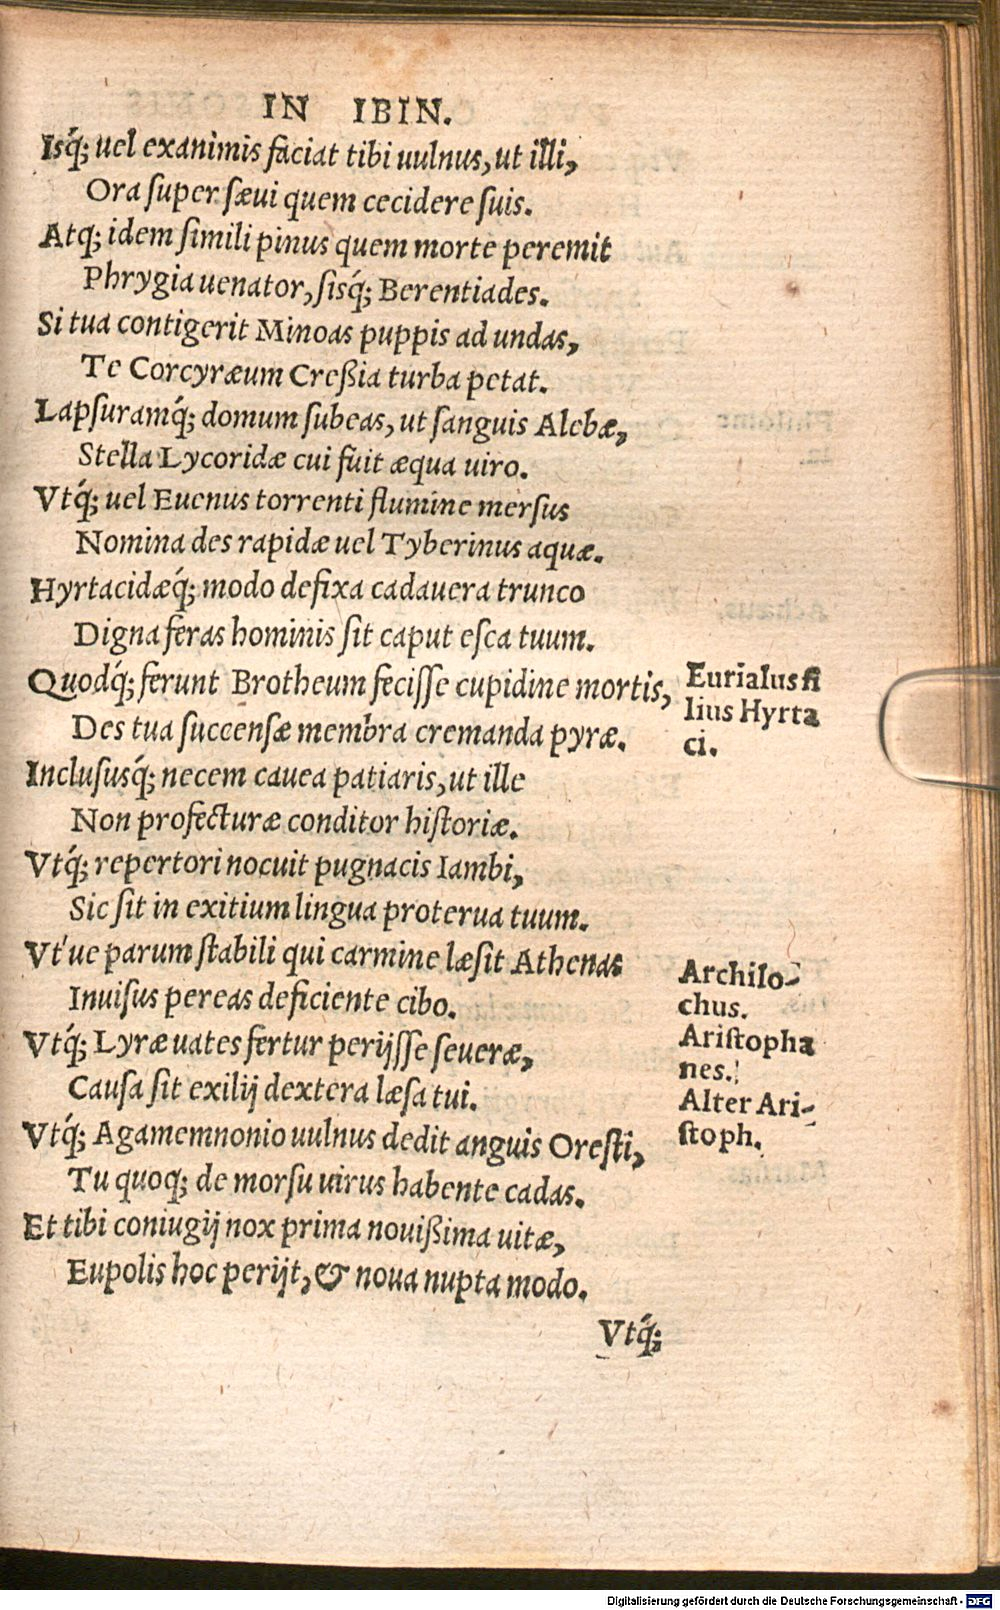 IN IBIN.
Isq́; uel exanimis faciat tibi uulnus, ut illi,
Ora super sæui quem cecidere suis.
Atq; idem simili pinus quem morte peremit
Phrygia uenator, sisq́; Berentiades.
Si tua contigerit Minoas puppis ad undas,
Te Corcyræum Creßia turba petat.
Lapsuramq́; domum subeas, ut sanguis Alebæ,
Stella Lycoridæ cui fuit æqua uiro.
Vtq́; uel Euenus torrenti flumine mersus
Nomina des rapidæ uel Tyberinus aquæ.
Hyrtacidæq́; modo defixa cadauera trunco
Digna feras hominis sit caput esca tuum.
Quodq́; ferunt Brotheum fecisse cupidine mortis,
Des tua succensæ membra cremanda pyræ.
Inclususq́; necem cauea patiaris, ut ille
Non profecturæ conditor historiæ.
Vtq́; repertori nocuit pugnacis Iambi,
Sic sit in exitium lingua proterua tuum.
Vt'ue parum stabili qui carmine læsit Athenas
Inuisus pereas deficiente cibo.
Vtq́; Lyræ uates fertur perijsse seueræ,
Causa sit exilij dextera læsa tui.
Vtq́; Agamemnonio uulnus dedit anguis Oresti,
Tu quoq; de morsu uirus habente cadas.
Et tibi coniugij nox prima nouißima uitæ,
Eupolis hoc perijt, & noua nupta modo.
Vtq́;
Eurialus fi
lius Hyrta
ci.
Archilo-
chus.
Aristopha
nes.
Alter Ari-
stoph.
Digitalisierung gefördert durch die Deutsche Forschungsgemeinschaft - DFG